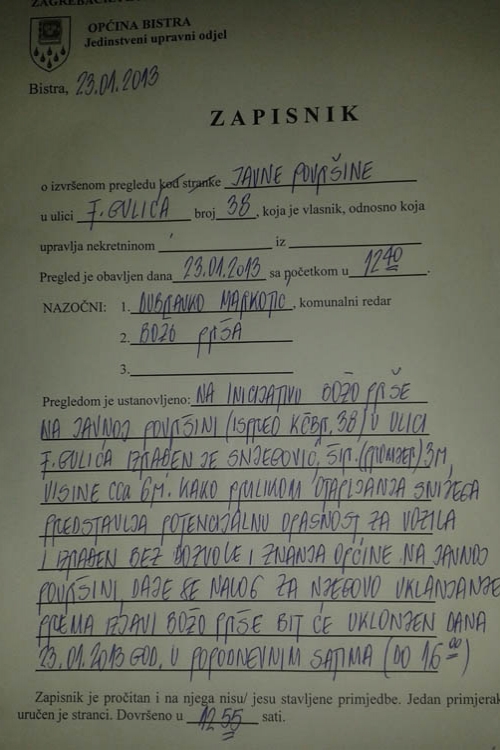 OPĆINA BISTRA
Jedinstveni upravni odjel
Bistra, 23.01.2013
ZAPISNIK
o izvršenom pregledu kod stranke JAVNE POVRŠINE
u ulici F. GULIĆA broj 38, koja je vlasnik, odnosno koja
upravlja nekretninom iz
Pregled je obavljen dana 23.01.2013 sa početkom u 12 40.
NAZOČNI: 1. DUBRAVKO MARKOTIĆ, komunalni redar
2. BOŽO PRŠA
3.
Pregledom je ustanovljeno: NA INICIJATIVU BOŽO PRŠE
NA JAVNOJ POVRŠINI (ISPRED KČBR. 38) U ULICI
F. GULIĆA IZRAĐEN JE SNJEGOVIĆ, ŠIR. (PROMJER) 3M,
VISINE CCA 6M. KAKO PRILIKOM OTAPLJANJA SNIJEGA
PREDSTAVLJA POTENCIJALNU OPASNOST ZA VOZILA
I IZRAĐEN BEZ DOZVOLE I ZNANJA OPĆINE NA JAVNOJ
POVRŠINI, DAJE SE NALOG ZA NJEGOVO UKLANJANJE
PREMA IZJAVI BOŽO PRŠE BIT ĆE UKLONJEN DANA
23.01.2013 GOD. U POPODNEVNIM SATIMA (DO 16 00)
Zapisnik je pročitan i na njega nisu/ jesu stavljene primjedbe. Jedan primjerak
uručen je stranci. Dovršeno u 12 55 sati.